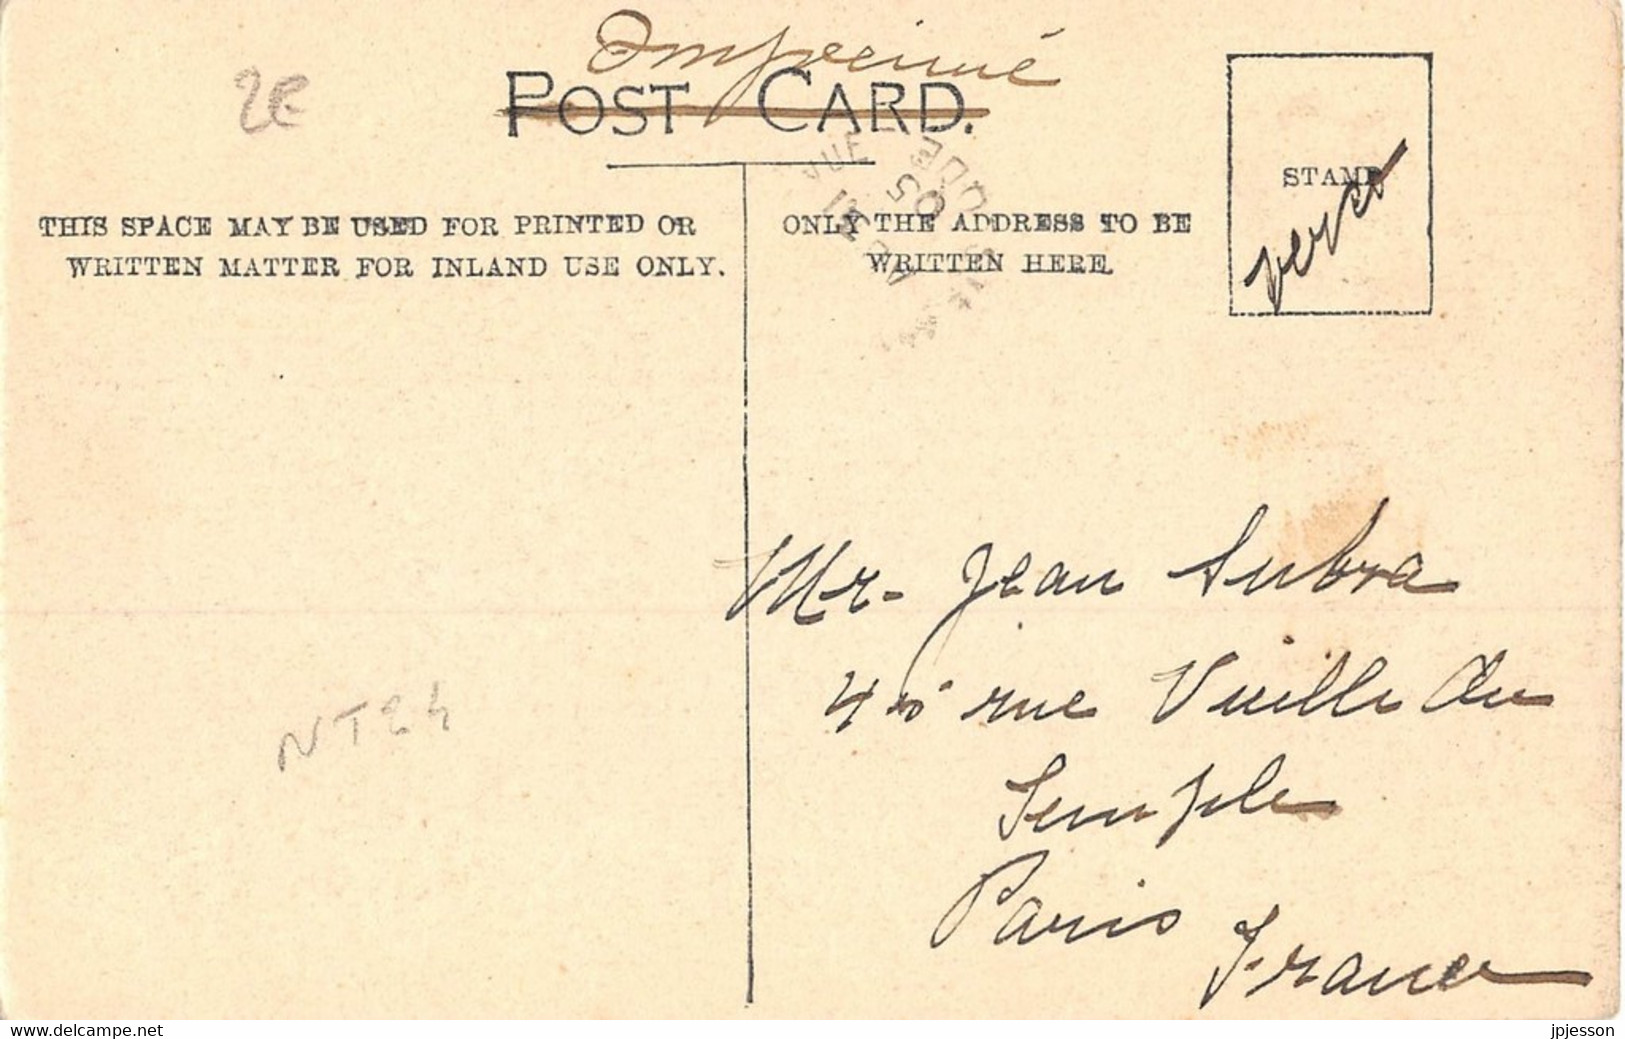 Imprimé
2E
POST CARD.
THIS SPACE MAY BE USED FOR PRINTED OR
WRITTEN MATTER FOR INLAND USE ONLY.
ONLY THE ADDRESS TO BE
WRITTEN HERE.
STAMP
verso
05
Mr. Jean Subra
rue Vieille du
Temple
Paris
France
NT24
www.delcampe.net
jpjesson